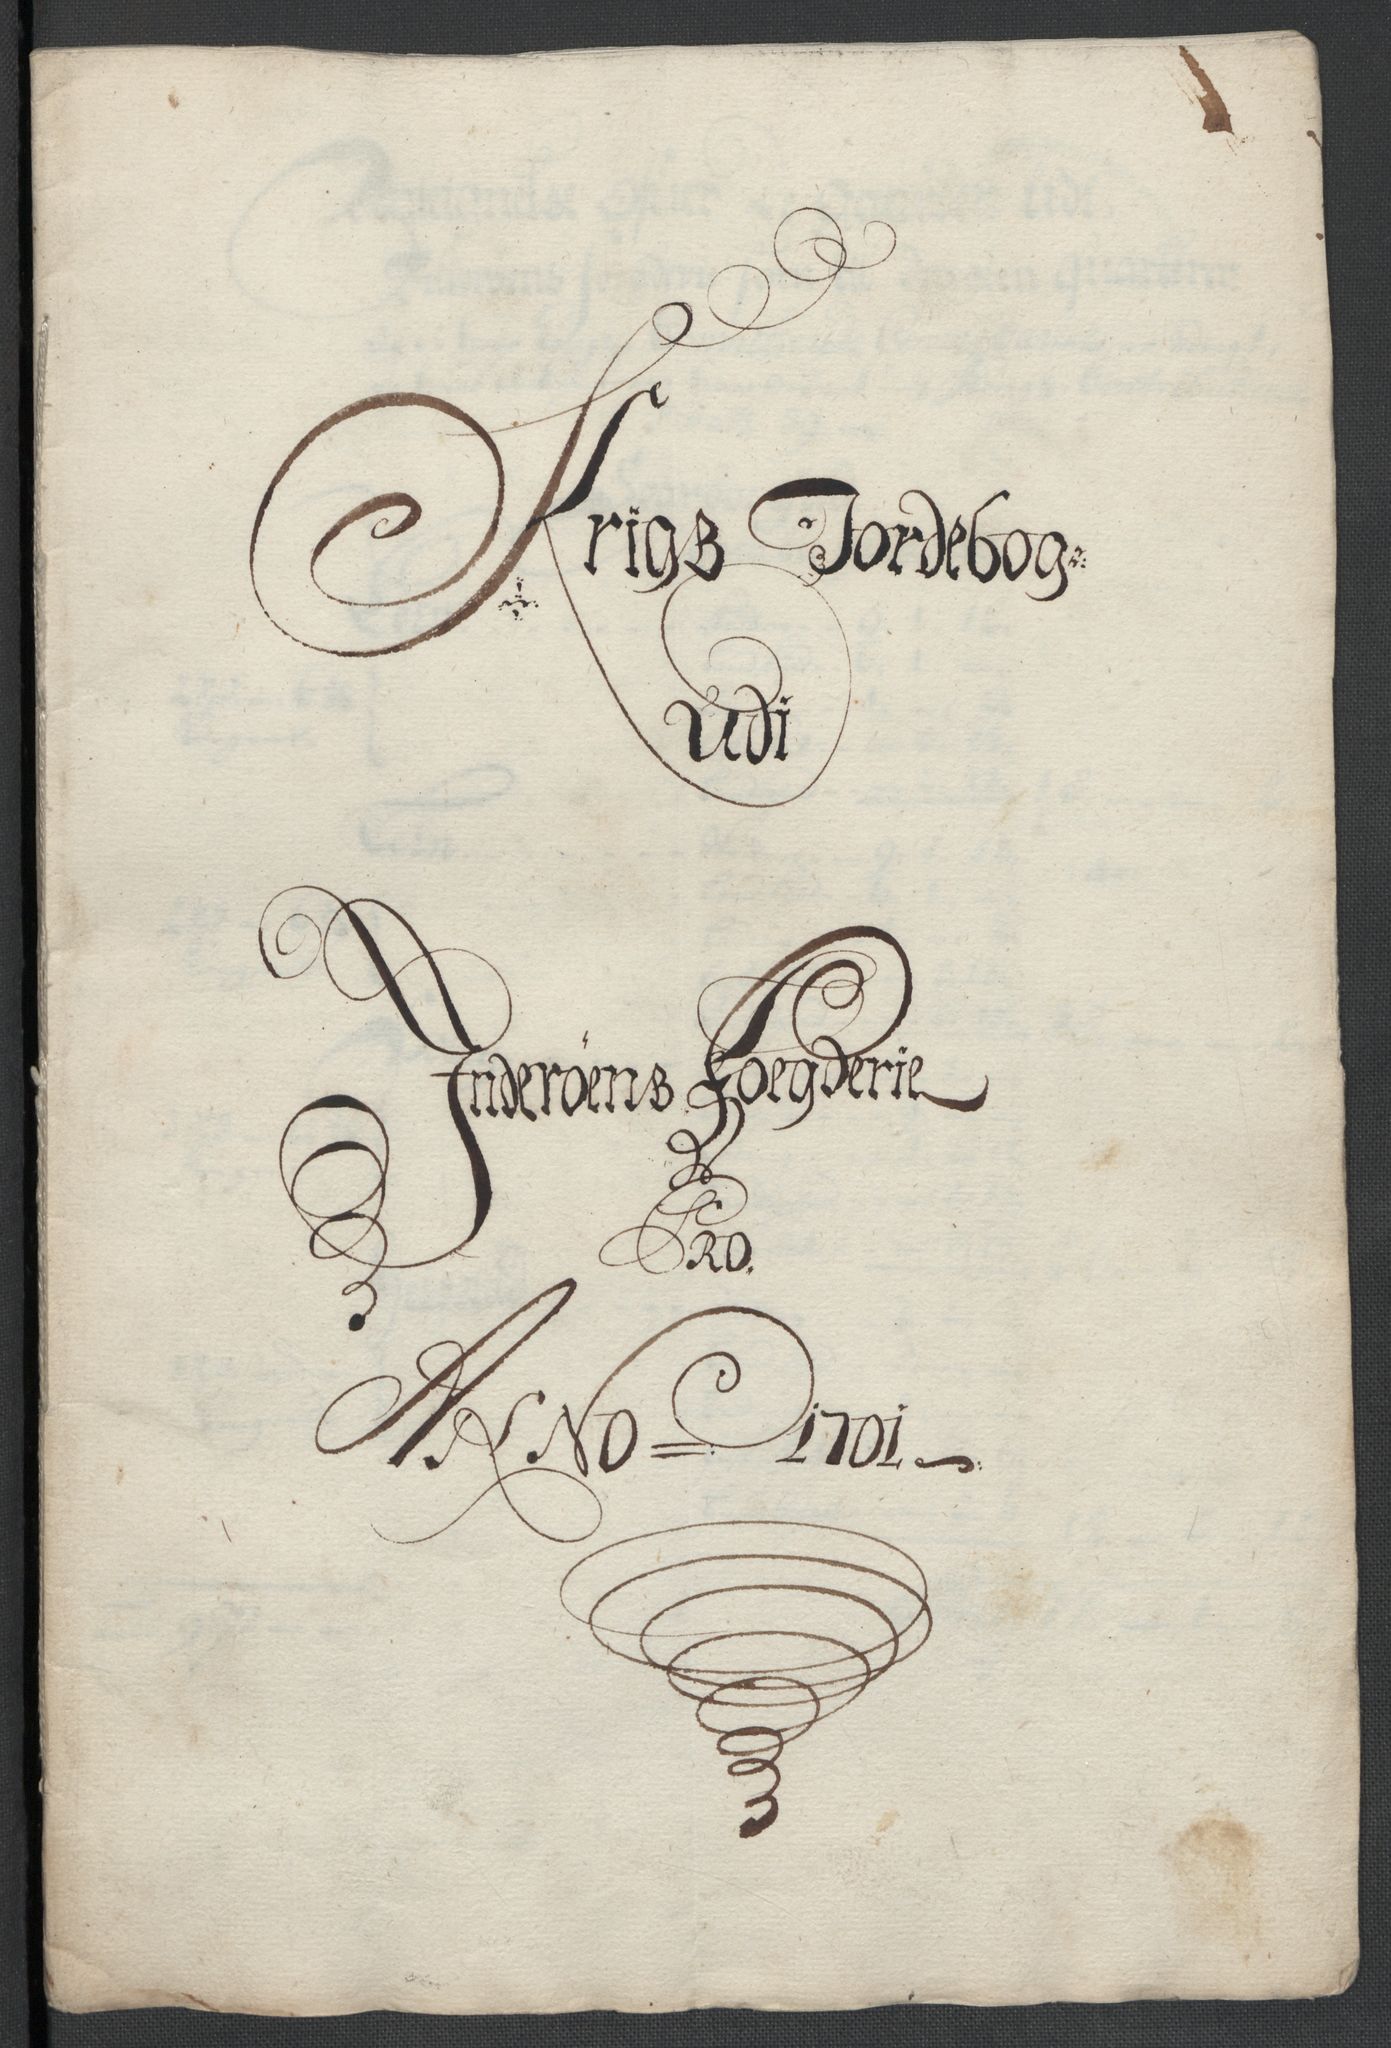 Krigs Jordebog
Udi
Inderöens Foegderie
PRO.
ANNO = 1701